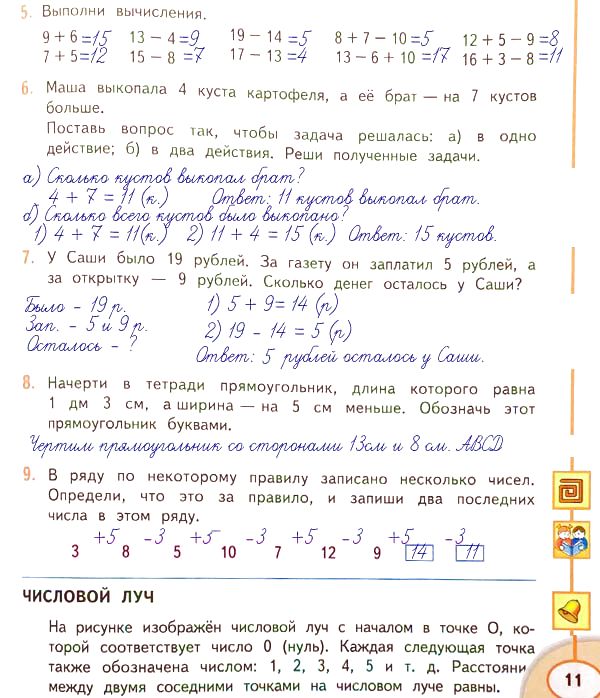 5. Выполни вычисления.
9 + 6 =15 13 − 4 =9 19 − 14 =5 8 + 7 − 10 =5 12 + 5 − 9 =8
7 + 5 =12 15 − 8 =7 17 − 13 =4 13 − 6 + 10 =17 16 + 3 − 8 =11
6. Маша выкопала 4 куста картофеля, а её брат — на 7 кустов
больше.
Поставь вопрос так, чтобы задача решалась: а) в одно
действие; б) в два действия. Реши полученные задачи.
а) Сколько кустов выкопал брат?
4 + 7 = 11 (к.) Ответ: 11 кустов выкопал брат.
б) Сколько всего кустов было выкопано?
1) 4 + 7 = 11(к.) 2) 11 + 4 = 15 (к.) Ответ: 15 кустов.
7. У Саши было 19 рублей. За газету он заплатил 5 рублей, а
за открытку — 9 рублей. Сколько денег осталось у Саши?
Было - 19 р. 1) 5 + 9= 14 (р)
Зап. - 5 и 9 р. 2) 19 - 14 = 5 (р)
Осталось - ?
Ответ: 5 рублей осталось у Саши.
8. Начерти в тетради прямоугольник, длина которого равна
1 дм 3 см, а ширина — на 5 см меньше. Обозначь этот
прямоугольник буквами.
Чертим прямоугольник со сторонами 13см и 8 см. ABCD
9. В ряду по некоторому правилу записано несколько чисел.
Определи, что это за правило, и запиши два последних
числа в этом ряду.
+5 -3 +5 -3 +5 -3 +5 -3
3 8 5 10 7 12 9 14 11
ЧИСЛОВОЙ ЛУЧ
На рисунке изображён числовой луч с началом в точке О, ко-
торой соответствует число 0 (нуль). Каждая следующая точка
также обозначена числом: 1, 2, 3, 4, 5 и т. д. Расстояни
между двумя соседними точками на числовом луче равны.
11